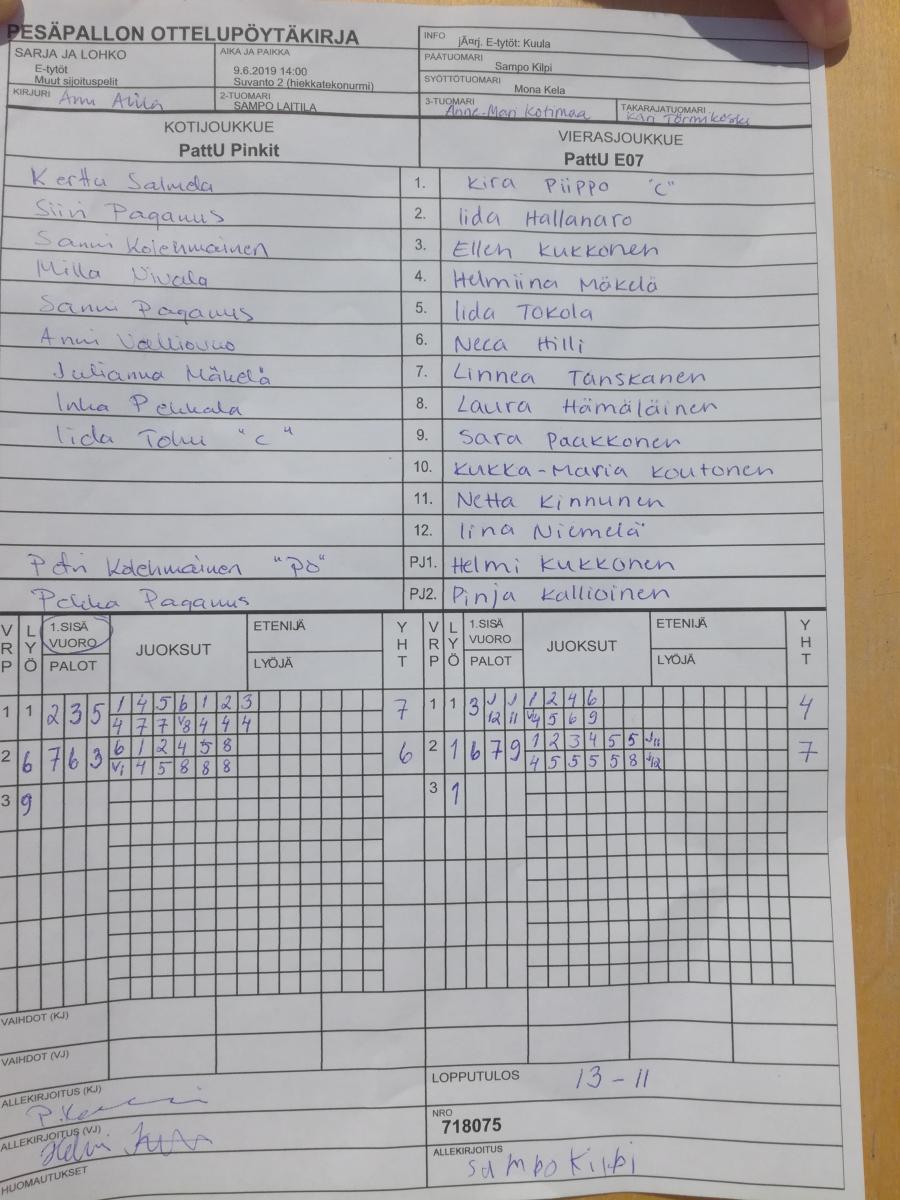 PESÄPALLON OTTELUPÖYTÄKIRJA
SARJA JA LOHKO
E-tytöt
Muut sijoituspelit
AIKA JA PAIKKA
9.6.2019 14:00
Suvanto 2 (hiekkatekonurmi)
KIRJURI Anu Alila
2-TUOMARI
SAMPO LAITILA
INFO jÃ¤rj. E-tytöt: Kuula
PÄÄTUOMARI
Sampo Kilpi
SYÖTTÖTUOMARI
Mona Kela
3-TUOMARI
Anne-Mari Kotimaa
TAKARAJATUOMARI
Kari Törmikoski
KOTIJOUKKUE
PattU Pinkit
VIERASJOUKKUE
PattU E07
Kerttu Salmela 1. Kira Piippo "C"
Siiri Paganus 2. Iida Hallanaro
Sanni Kolehmainen 3. Ellen Kukkonen
Milla Nivala 4. Helmiina Mäkelä
Sanni Paganus 5. Iida Tokola
Anni 6. Neea Hilli
Julianna Mäkelä 7. Linnea Tanskanen
Inka Pekkala 8. Laura Hämäläinen
Iida Tohu "C" 9. Sara Paakkonen
10. Kukka-Maria Koutonen
11. Netta Kinnunen
12. Iina Niemelä
Petri Kolehmainen "PÖ" PJ1. Helmi Kukkonen
Pekka Paganus PJ2. Pinja Kallioinen
VRP LYÖ 1.SISÄ VUORO PALOT JUOKSUT ETENIJÄ LYÖJÄ YHT VRP LYÖ 1.SISÄ VUORO PALOT JUOKSUT ETENIJÄ LYÖJÄ YHT
1 1 2 3 5 1 4 5 6 1 2 3 7 1 1 3 J12 J11 1 2 4 6 4
4 7 7 V8 4 4 4 V4 5 6 9
2 6 7 6 3 6 1 2 4 5 8 6 2 1 6 7 9 1 2 3 4 5 5 J11 7
V1 4 5 8 8 8 4 5 5 5 5 8 J12
3 9 3 1
VAIHDOT (KJ)
VAIHDOT (VJ)
ALLEKIRJOITUS (KJ)
ALLEKIRJOITUS (VJ)
HUOMAUTUKSET
LOPPUTULOS 13 - 11
NRO
718075
ALLEKIRJOITUS
Sampo Kilpi